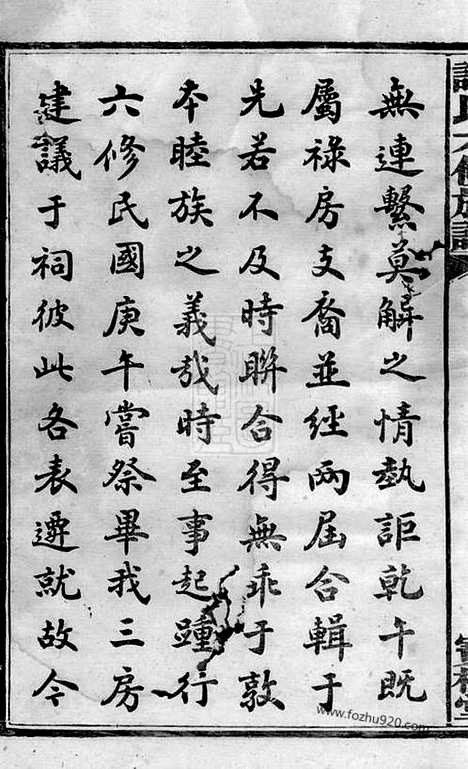 無連繫莫解之情熱詎乾午既
屬祿房支裔並經兩屆合輯于
先若不及時聯合得無乖于敦
本睦族之義哉時至事起踵行
六修民國庚午嘗祭畢我三房
建議于祠彼此各表遷就故今
www.fozhu920.com